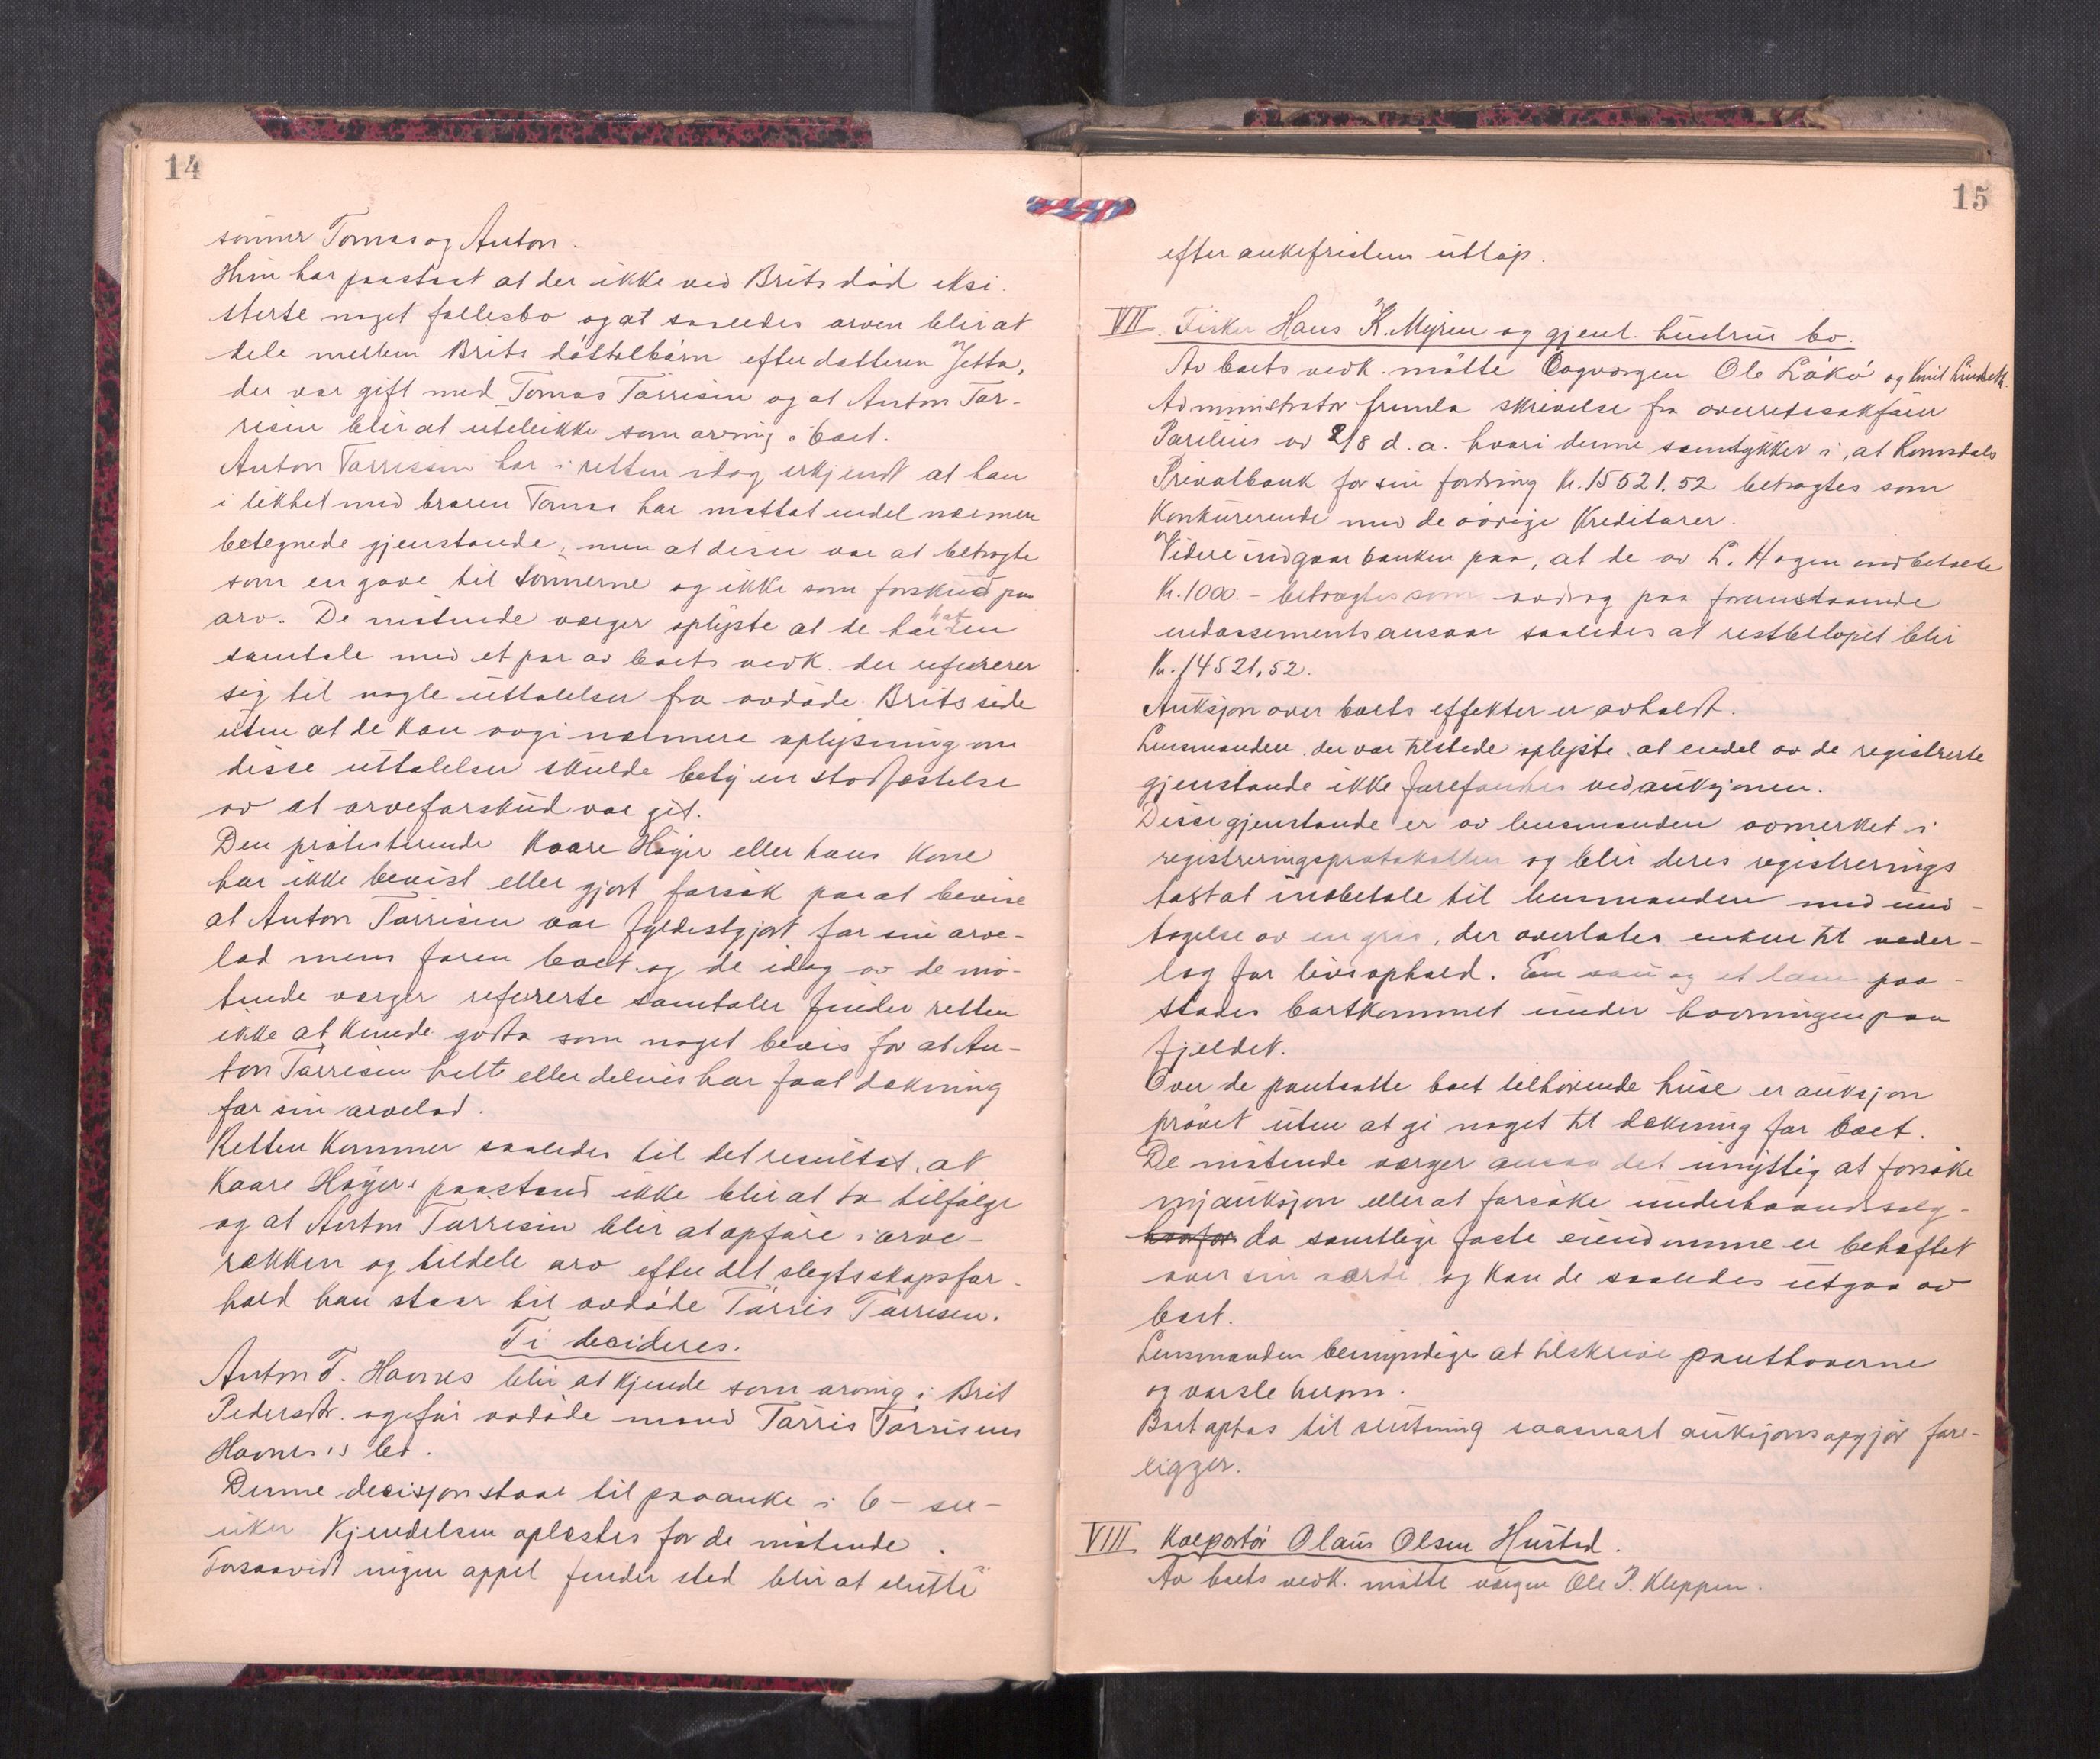 14
sönner Tomas og Anton.
Hun har paastaat at der ikke ved Brits död eksi-
sterte noget fællesbo og at saaledes arven blir at
dele mellem Brits dötrebörn efter datteren Jetta,
der var gift med Tomas Törrisen og at Anton Tör-
risen blir at utelukke som arving i boet.
Anton Törrissen har i retten idag erkjendt at han
i likhet med broren Tomas har mottat endel nærmere
betegnede gjenstande, men at disse var at betragte
som en gave til sönnerne og ikke som forskud paa
arv. De mötende verger oplyste at de har hat en
samtale med et par av boets vedk. der refererer
sig til nogle uttalelser fra avdöde Brits side
uten at de kan avgi nærmere oplysning om
disse uttalelser skulde bety en stadfæstelse
av at arveforskud var git.
Den protesterende Kaare Höyer eller hans kone
har ikke bevist eller gjort forsök paa at bevise
at Anton Törrisen var fyldestgjort for sin arve-
lod mens faren levet og de idag av de mö-
tende verger refererte samtaler finder retten
ikke at kunde godta som noget bevis for at An-
ton Törrisen helt eller delvis har faat dækning
for sin arvelod.
Retten kommer saaledes til det resultat, at
Kaare Höyers paastand ikke blir at ta tilfölge
og at Anton Törrisen blir at opföre i arve-
rækken og tildele arv efter det slegtsskapsfor-
hold han staar til avdöde Törris Törrisen.
Ti decideres.
Anton T. Havnes blir at kjende som arving i Brit
Pedersdtr. og för avdöde mand Törris Törrisens
Havnes's bo.
Denne decisjon staar til paaanke i 6 - sex -
uker Kjendelsen oplæstes for de mötende.
Forsaavidt ingen appel finder sted blir at slutte
15
efter ankefristens utlöp.
VII. Fisker Hans K. Myren og gjenl. hustrus bo.
Av boets vedk. mötte lagvergen Ole Lökö og Knut
Administrator fremla skrivelse fra overretssakförer
Parelius av 2/8 d.a. hvori denne samtykker i, at Romsdals
Privatbank for sin fordring Kr. 15521.52 betragtes som
konkurerende med de övrige kreditorer.
Videre indgaar banken paa, at de av L. Hagen indbetalte
Kr. 1000.- betragtes som avdrag paa foranstaaende
endossementsansvar saaledes at restbelöpet blir
Kr. 14521,52.
Auksjon over boets effekter er avholdt.
Lensmanden der var tilstede oplyste at endel av de registrerte
gjenstande ikke forefandtes ved auksjonen.
Disse gjenstande er av lensmanden avmerket i
registreringsprotokollen og blir deres registrerings
takst at indbetale til lensmanden med und-
tagelse av en gris, der overlates enken til veder-
lag for livsophold. En sau og et lam paa-
stades bortkommet under havningen paa
fjeldet.
Over de pantsatte boet tilhörende huse er auksjon
prövet uten at gi noget til dækning for boet.
De mötende verger ansaa det unyttig at forsöke
ny auksjon eller at forsöke underhaandssalg
hvorfor da samtlige faste eiendomme er beheftet
over sin værdi og kan de saaledes utgaa av
boet.
Lensmanden bemyndiges at tilskrive panthaverne
og varsle herom.
Boet optas til slutning saasnart auksjonsopgjör fore-
ligger.
VIII. Kolportör Olaus Olsen Hustad.
Av boets vedk. mötte vergen Ole P. Kleppen.